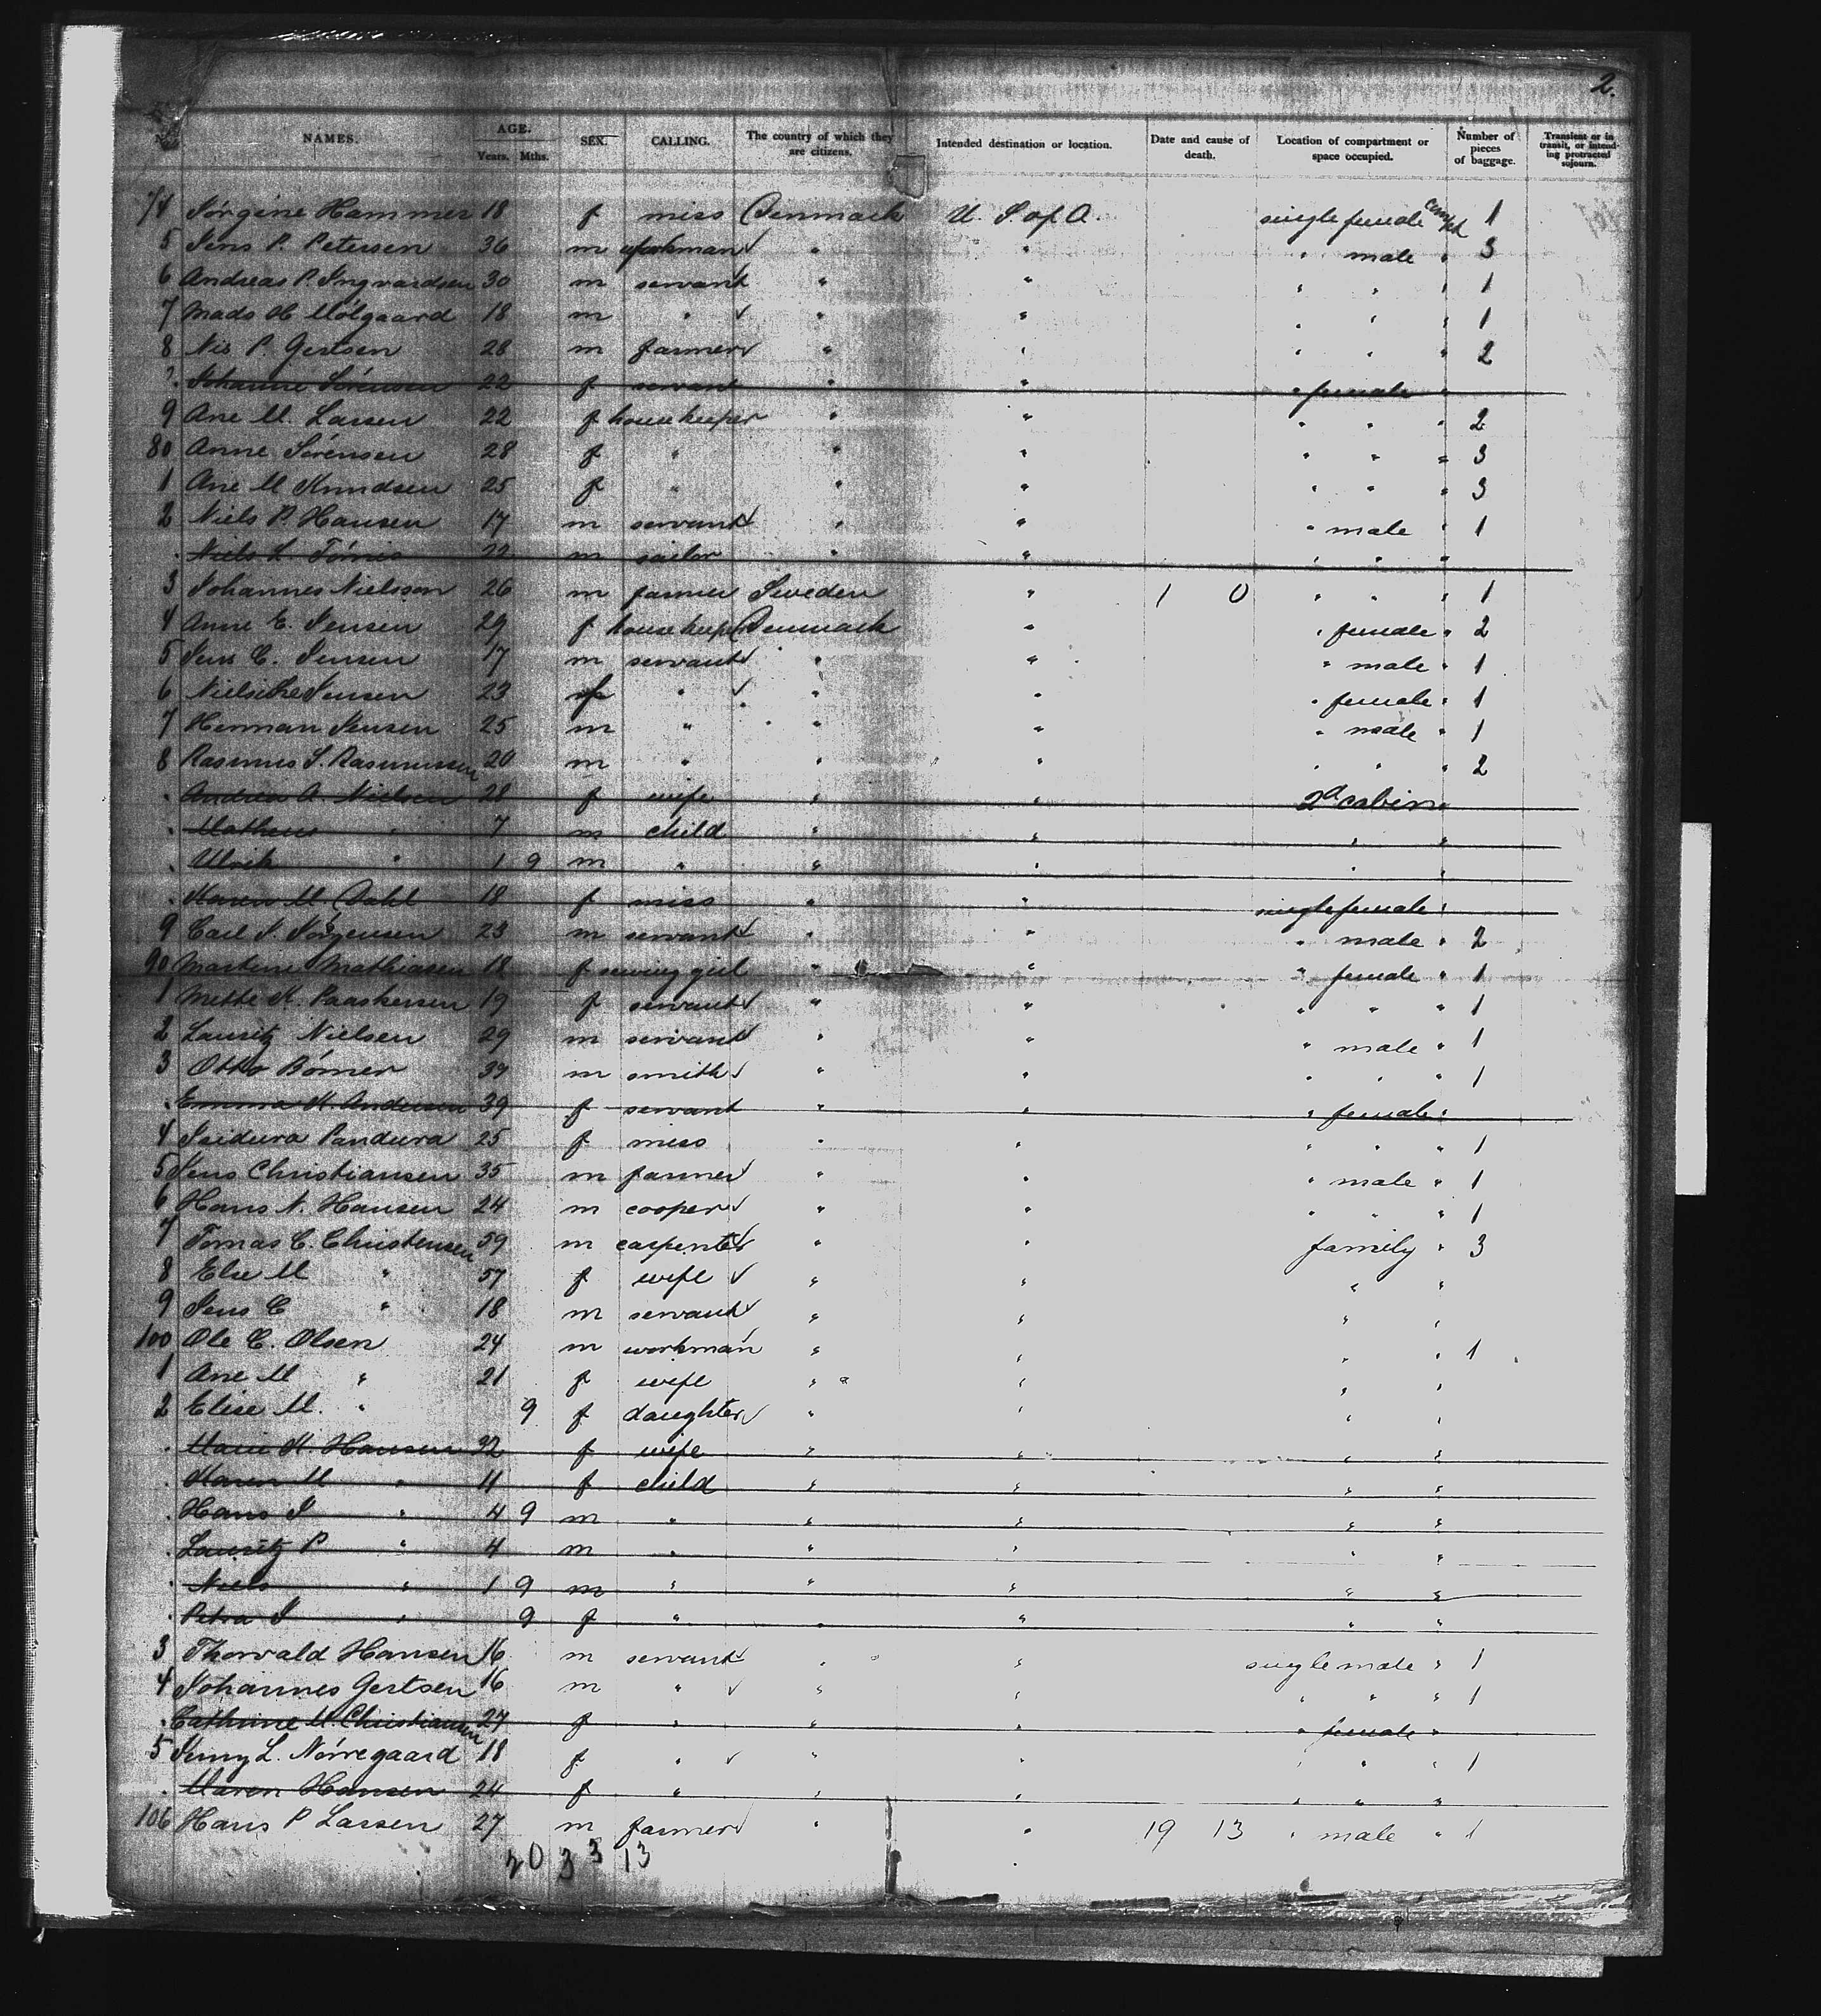 2.
NAMES. AGE. Years. Mths. SEX. CALLING. The country of which they are citizens. Intended destination or location. Date and cause of death. Location of compartment or space occupied. Number of pieces of baggage. Transient or in transit, or intending protracted sojourn.
74 Jörgine Hammer 18 f miss Denmark U. S. of A. single female 1
5 Jens P. Petersen 36 m workman " " " male " 3
6 Andreas P. Ingvardsen 30 m servant " " " " " 1
7 Mads H Mölgaard 18 m " " " " " " 1
8 Nis P. Gertsen 28 m farmer " " " " " 2
Johanne Sörensen 22 f servant " " " female "
9 Ane M. Larsen 22 f housekeeper " " " " " 2
80 Anne Sörensen 28 f " " " " " " 3
1 Ane M Knudsen 25 f " " " " " " 3
2 Niels P. Hansen 17 m servant " " " male " 1
Niels L. 22 m sailor " " " " "
3 Johannes Nielsson 26 m farmer Sweden " 1 0 " " " 1
4 Anne E. Jensen 29 f housekeeper Denmark " " female " 2
5 Jens C. Jensen 17 m servant " " " male " 1
6 Nielsine Jensen 23 f " " " " female " 1
7 Herman Jensen 25 m " " " " male " 1
8 Rasmus S. Rasmussen 20 m " " " " " " 2
Andrea A. Nielsen 28 f wife " " 2d cabin "
Matheus " 7 m child " " " "
Ulrik " 1 9 m " " " " "
Maren M. Dahl 18 f miss " " single female "
9 Carl J. Jörgensen 23 m servant " " " male " 2
90 Martine Mathiasen 18 f sewing girl " " " female " 1
1 Mette K. Paaskesen 19 f servant " " " " " 1
2 Lauritz Nielsen 29 m servant " " " male " 1
3 Otto Börner 39 m smith " " " " " 1
Emma K. Andersen 39 f servant " " " female "
4 Isidura Pandura 25 f miss " " " " " 1
5 Jens Christiansen 35 m farmer " " " male " 1
6 Hans N. Hansen 24 m cooper " " " " " 1
7 Tomas C. Christensen 59 m carpenter " " family " 3
8 Else M " 57 f wife " " " "
9 Jens C " 18 m servant " " " "
100 Ole C. Olsen 24 m workman " " " " 1
1 Ane M " 21 f wife " " " "
2 Elise M. " 9 f daughter " " " "
Marie K. Hansen 32 f wife " " " "
Maren M " 11 f child " " " "
Hans J " 4 9 m " " " " "
Lauritz P " 4 m " " " " "
Niels " 1 9 m " " " " "
Petra J " 9 f " " " " "
3 Thorvald Hansen 16 m servant " " single male " 1
4 Johannes Gertsen 16 m " " " " " " 1
Cathrine M. Christiansen 27 f " " " " female "
5 Jenny L. Nörregaard 18 f " " " " " " 1
Maren Hansen 24 f " " " " " "
106 Hans P Larsen 27 m farmer " " 19 13 " male " 1
20 33 13